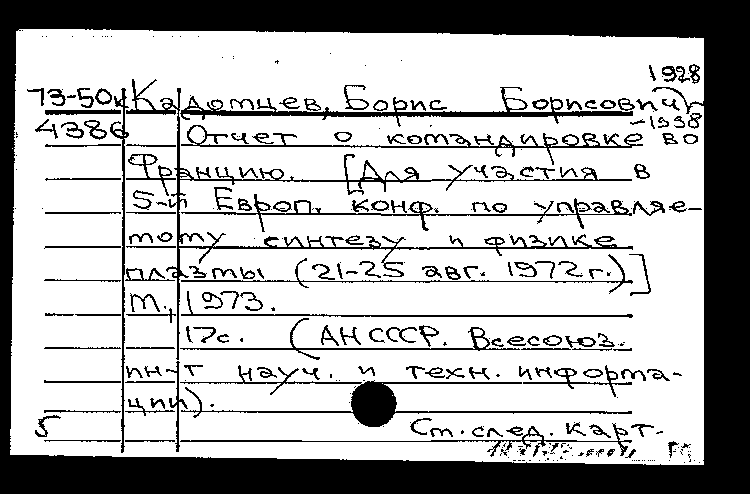 1928
73-50к Кадомцев, Борис Борисович
-1998
4386 Отчет о командировке во
Францию. [Для участия в
5-й Европ. конф. по управляе-
мому синтезу и физике
плазмы (21-25 авг. 1972 г.)]
М., 1973.
17с. (АН СССР. Всесоюз.
ин-т науч. и техн. информа-
ции).
5 Ст. след. карт.